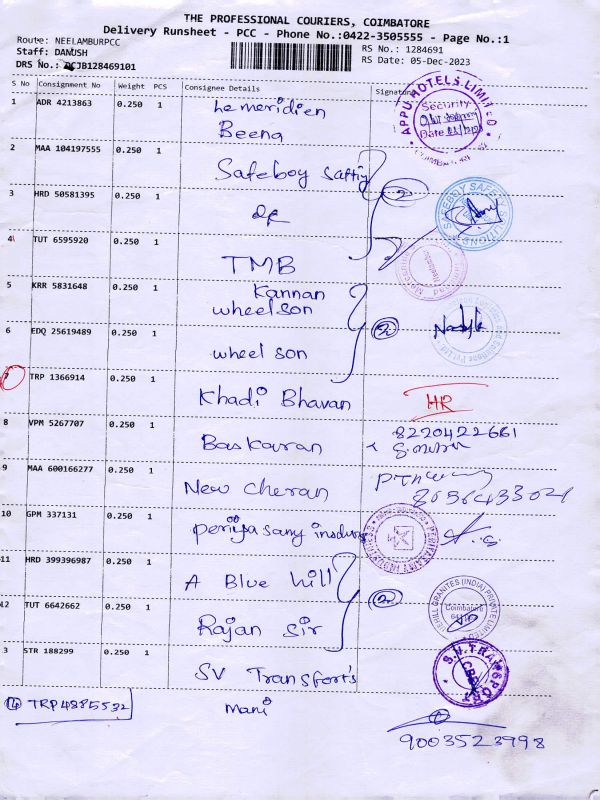 THE PROFESSIONAL COURIERS, COIMBATORE
Delivery Runsheet - PCC - Phone No.:0422-3505555 - Page No.:1
Route: NEELAMBURPCC
RS No.: 1284691
Staff: DANUSH
RS Date: 05-Dec-2023
DRS No.: PCJB128469101
S No Consignment No Weight PCS Consignee Details Signature
1 ADR 4213863 0.250 1 Le meridien
Beena
APPU HOTELS LIMITED
Security
Date
2 MAA 104197555 0.250 1 Safeboy
2
SAFEBOY SAFETY SOLUTIONS
3 HRD 50581395 0.250 1 do
4 TUT 6595920 0.250 1 TMB
5 KRR 5831648 0.250 1 Kannan
wheel son
2
6 EDQ 25619489 0.250 1 wheel son
7 TRP 1366914 0.250 1 Khadi Bhavan HR
8 VPM 5267707 0.250 1 Baskaran 8220422661
9 MAA 600166277 0.250 1 New Cheran
8056433021
10 GPM 337131 0.250 1 periya samy
11 HRD 399396987 0.250 1 A Blue hill
2
BLUEHILL GRANITES (INDIA) PRIVATE LIMITED
Coimbatore
12 TUT 6642662 0.250 1 Rajan Sir
3 STR 188299 0.250 1 SV Transfort's
Mani
S.V. TRANSPORT
CBE
14 TRP 4885532
9003523998